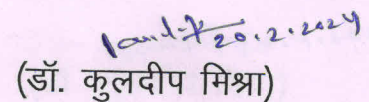 20.2.2024
(डॉ. कुलदीप मिश्रा)